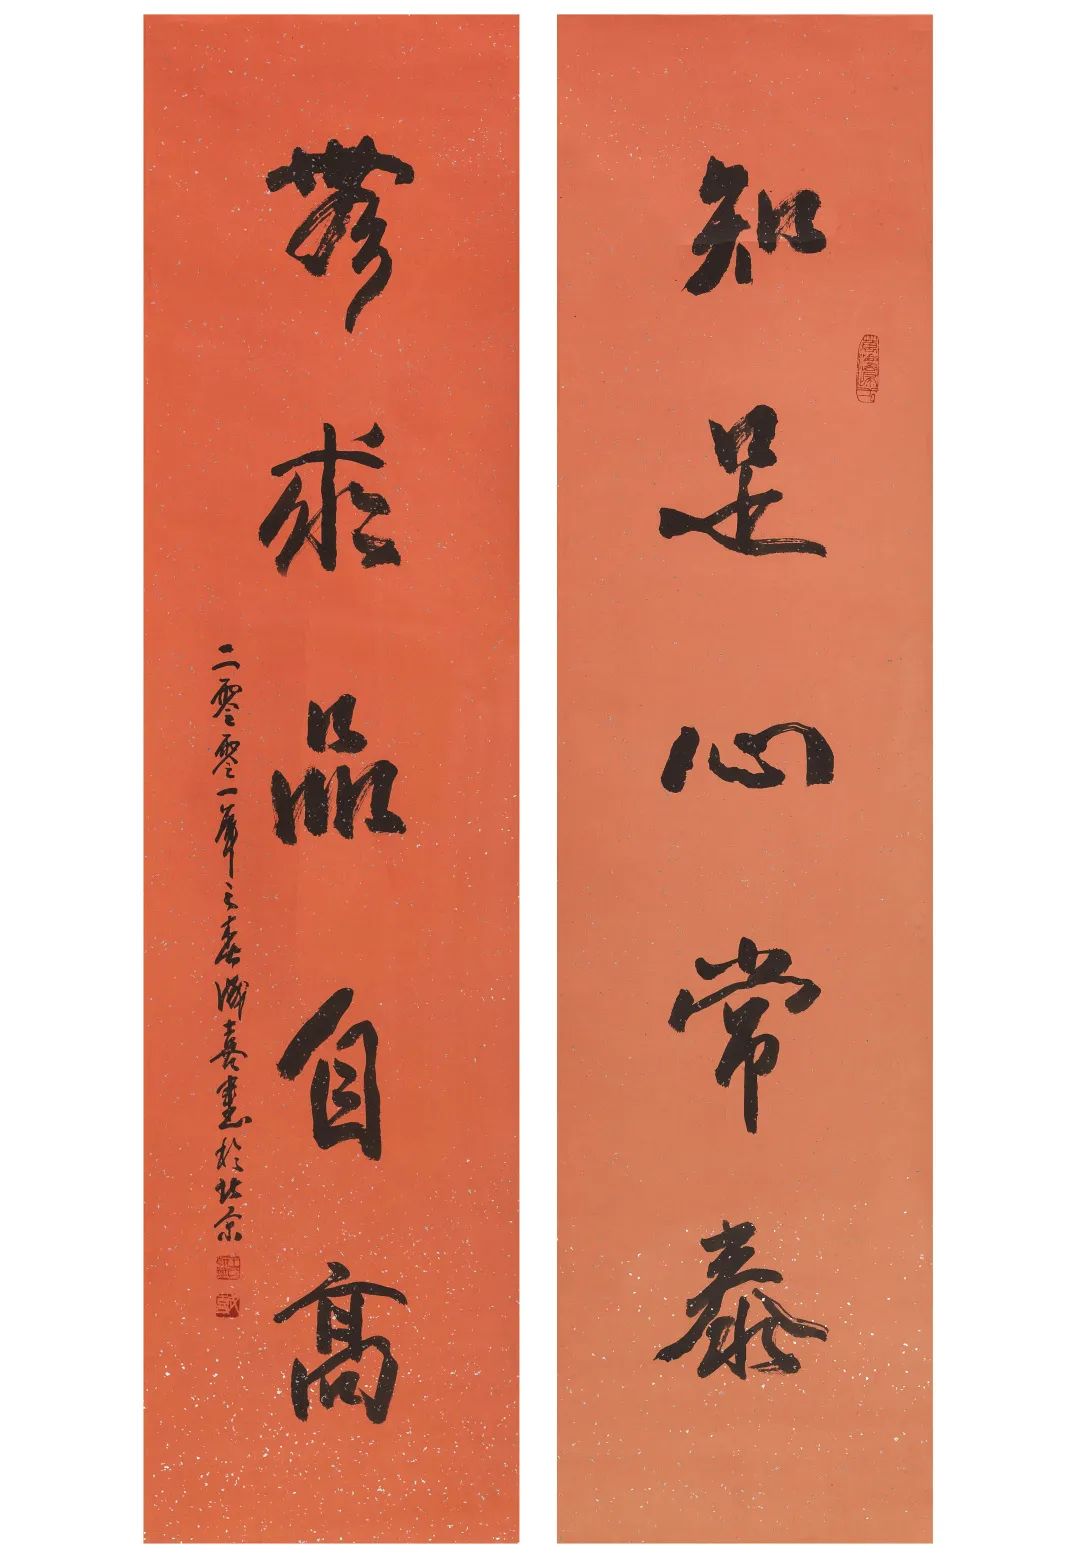 知足心常泰
無求品自高
二零零一年之春成喜書於北京